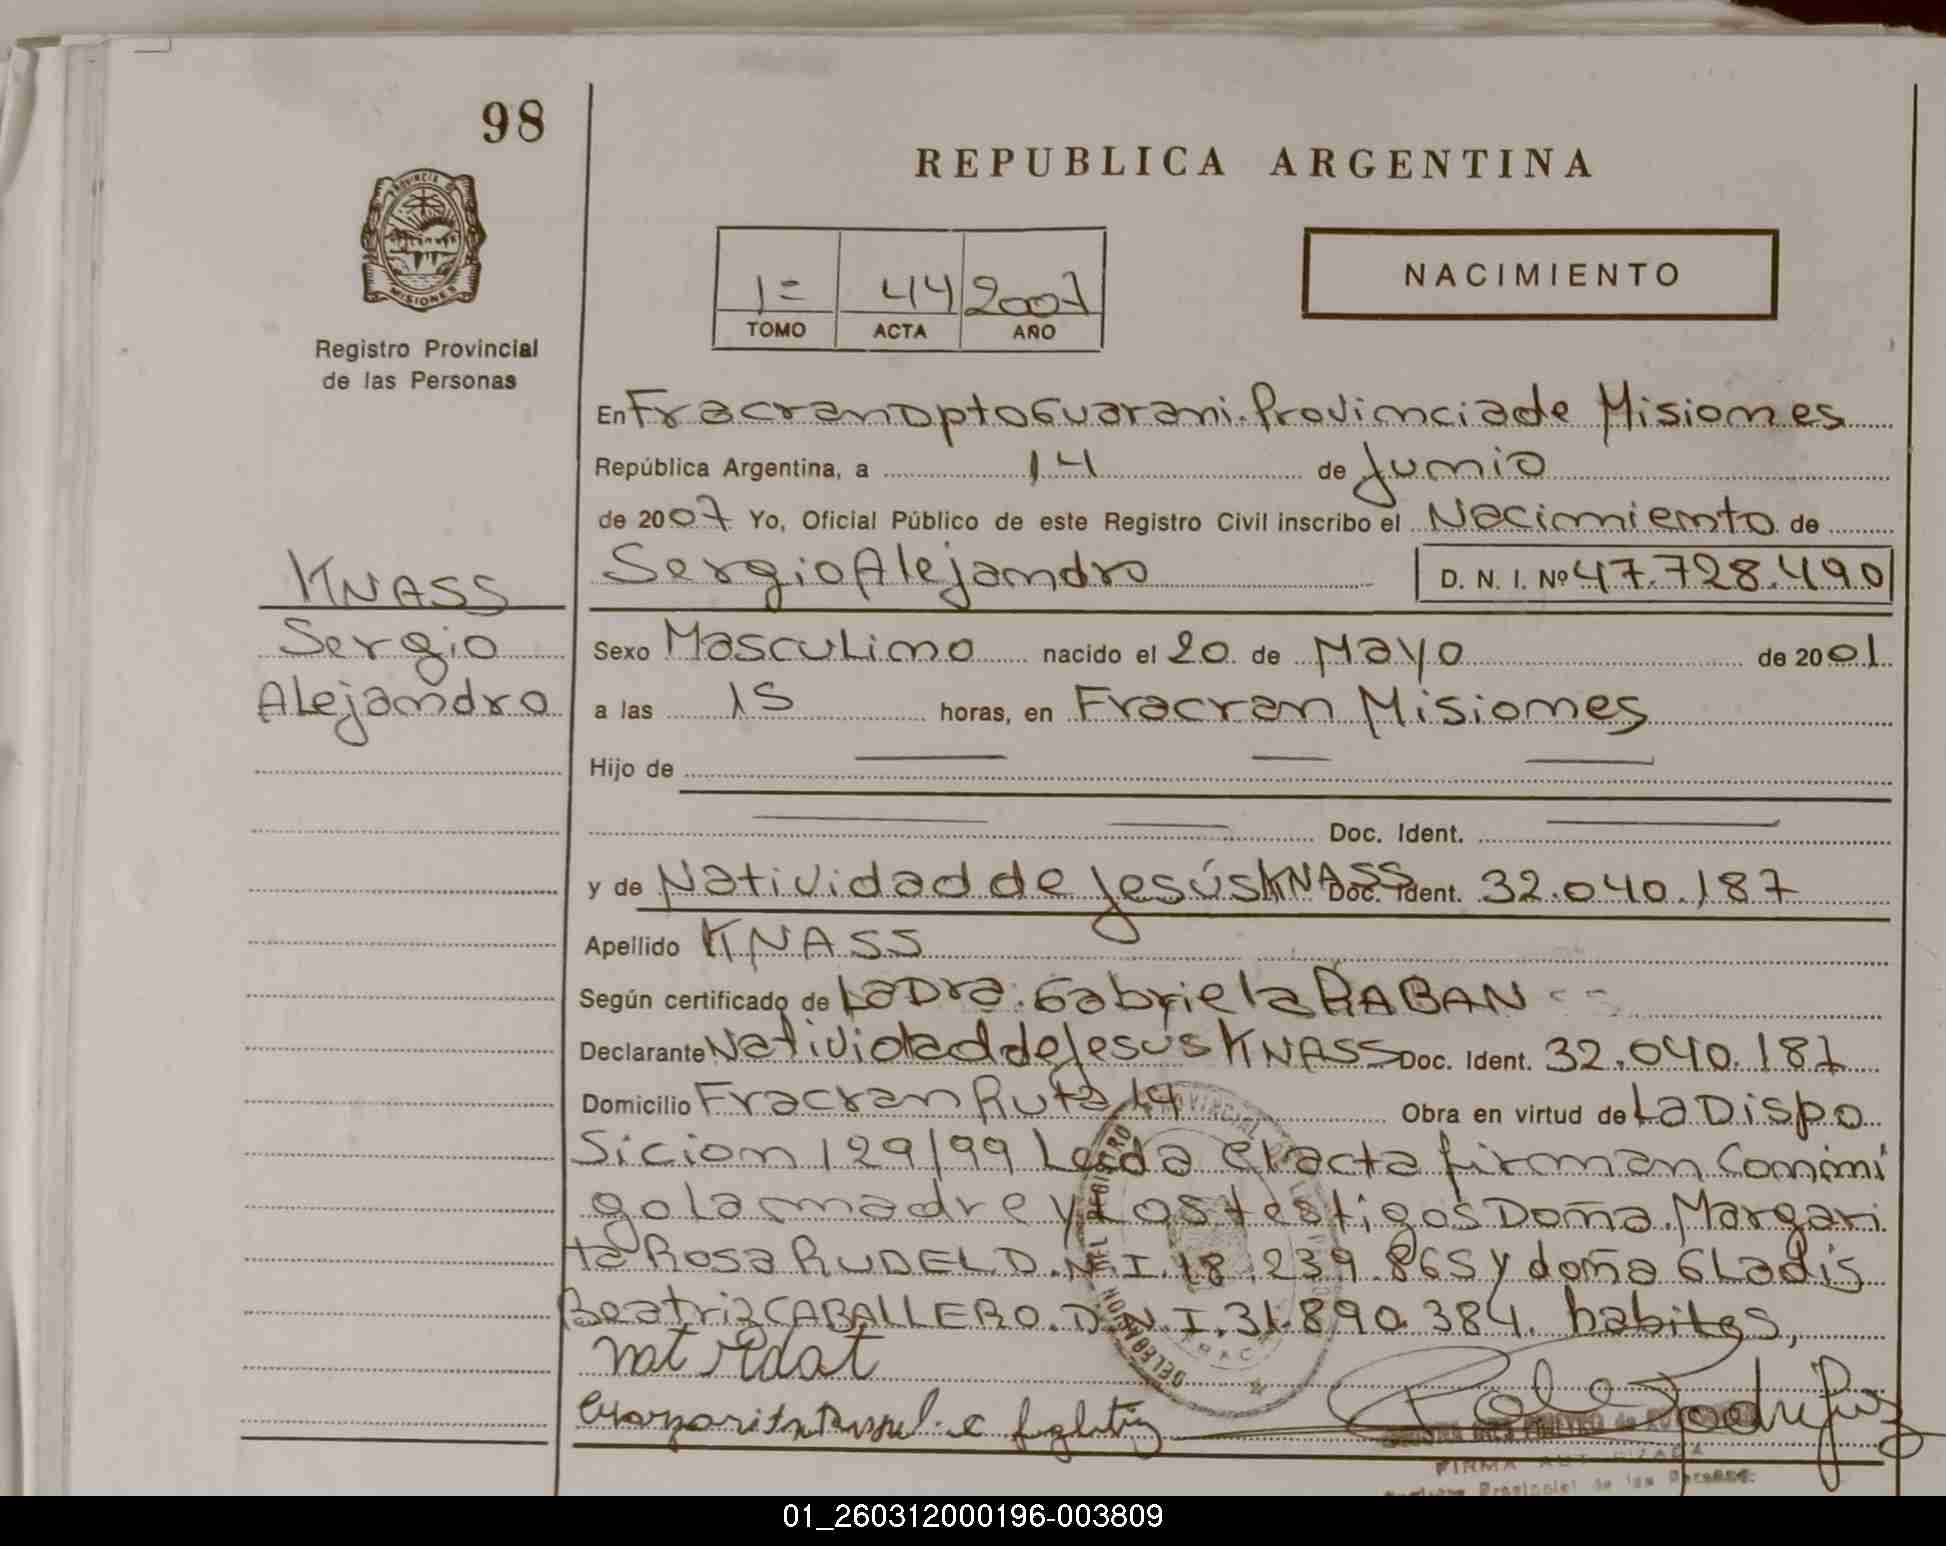 98
REPUBLICA ARGENTINA
PROVINCIA DE
MISIONES
Registro Provincial
de las Personas
1= 44 2007
TOMO ACTA AÑO
NACIMIENTO
En Fracran Dpto Guarani. Provincia de Misiones
República Argentina, a 14 de Junio
de 2007 Yo, Oficial Público de este Registro Civil inscribo el Nacimiento de
KNASS
Sergio Alejandro D. N. I. Nº 47.728.490
Sergio
Sexo Masculino nacido el 20 de Mayo de 2001
Alejandro
a las 15 horas, en Fracran Misiones
Hijo de
Doc. Ident.
y de Natividad de Jesús KNASS Doc. Ident. 32.040.187
Apellido KNASS
Según certificado de La Dra. Gabriela RABAN
Declarante Natividad de Jesús KNASS Doc. Ident. 32.040.187
Domicilio Fracran Ruta 14 Obra en virtud de La Dispo
sicion 129/99 Leida el acta firman Conmi
go La madre y Los testigos Doña. Margari
ta Rosa RUDEL D.N.I. 18.239.865 y doña Gladis
Beatriz CABALLERO. D.N.I. 31.890.384. habites,
FIRMA AUTORIZADA
Registro Provincial de las Personas
01_260312000196-003809